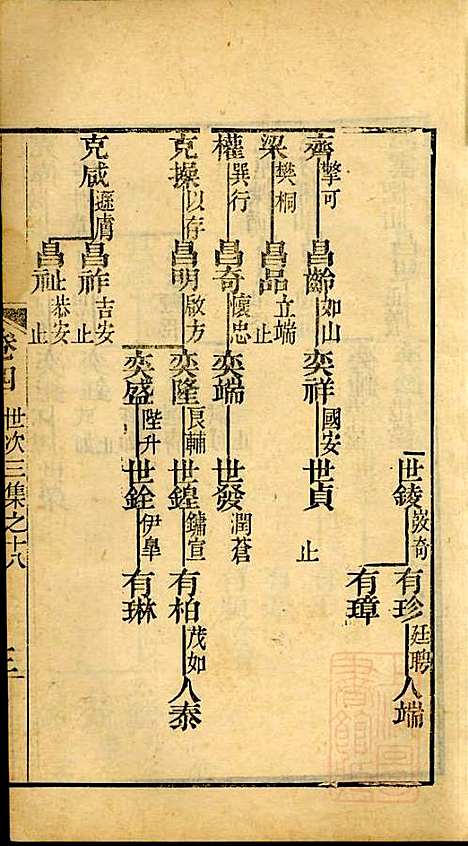 世錂 嶽奇 有珍 廷聘 人端
有璋
齊 擎可 昌齡 如山 奕祥 國安 世貞 止
梁 樊桐 昌品 立端 止
權 巽行 昌奇 懷忠 奕端 世發 潤蒼
克操 以存 昌明 啟方 奕隆 良輔 世鍠 鏞宣 有柏 茂如 人泰
奕盛 陛升 世銓 伊臯 有琳
克咸 遜膚 昌祚 吉安 止
昌祉 恭安 止
卷四 世次三集之十八 三